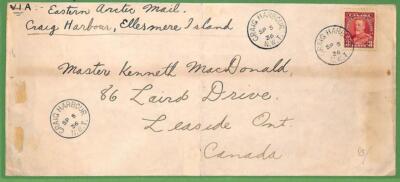 VIA:- Eastern Arctic Mail.
Craig Harbour, Ellesmere Island
CRAIG HARBOUR
SP 5
36
N.W.T.
CRAIG HARBOUR
SP 5
36
N.W.T.
CANADA
Master Kenneth MacDonald,
86 Laird Drive.
Leaside Ont.
Canada
CRAIG HARBOUR
SP 5
36
N.W.T.